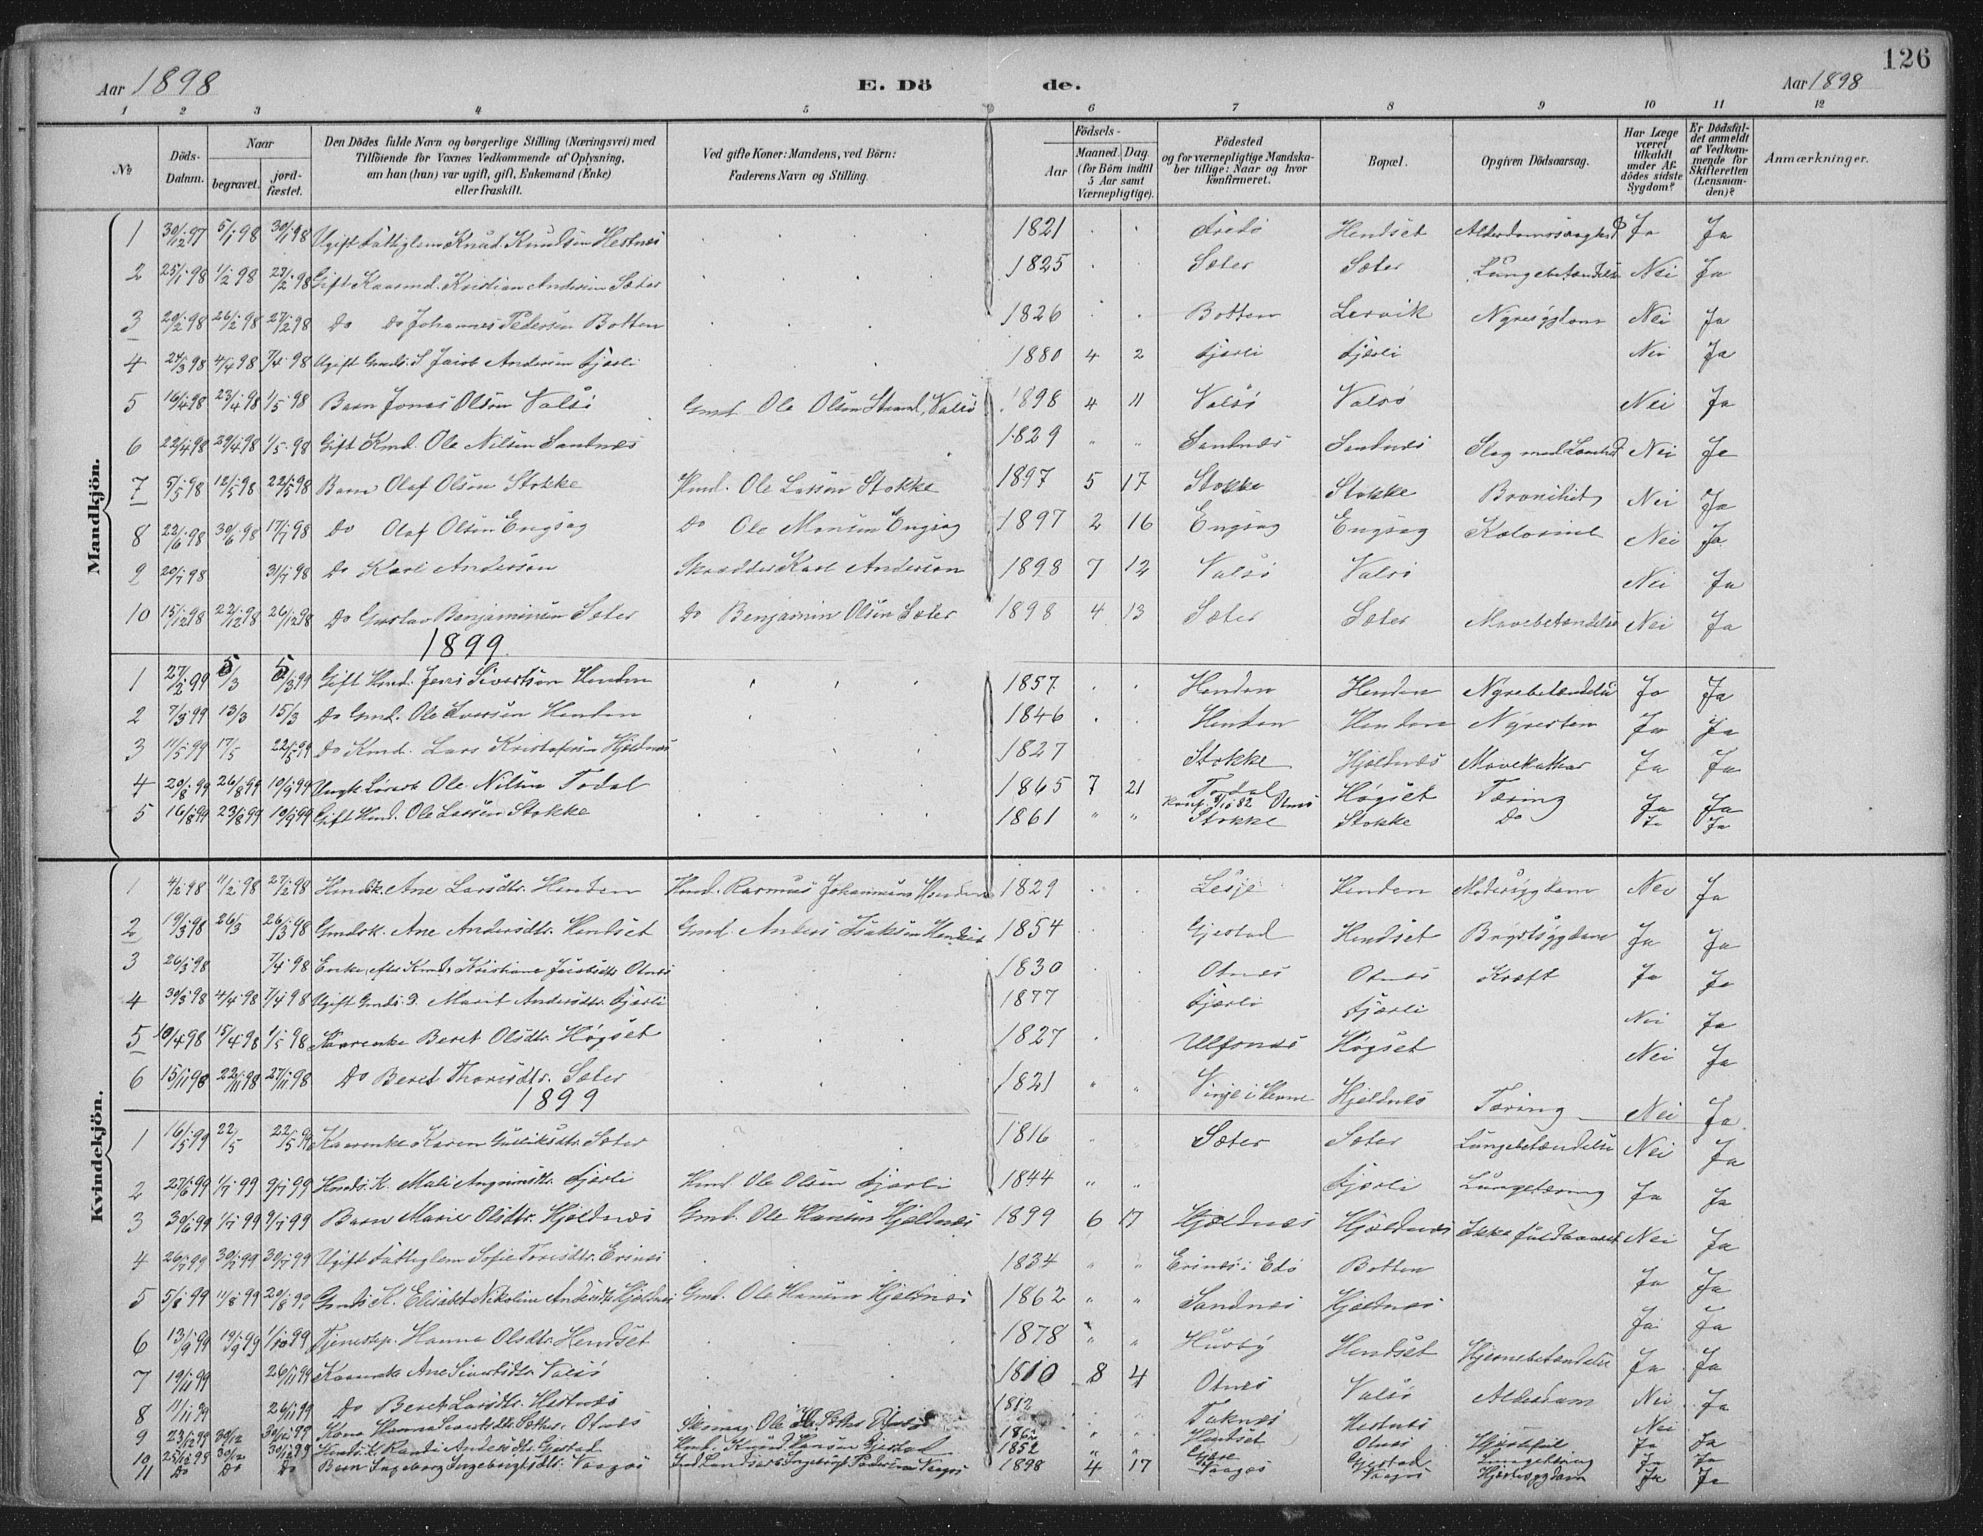 126
Aar 1898 E. Dö de. Aar 1898
1 2 3 4 5 6 7 8 9 10 11 12
No Döds-Datum. Naar begravet. jordfæstet. Den Dödes fulde Navn og borgerlige Stilling (Næringsvei) med Tilföiende for Voxnes Vedkommende af Oplysning, om han (hun) var ugift, gift, Enkemand (Enke) eller fraskilt. Ved gifte Koner: Mandens, ved Börn: Faderens Navn og Stilling. Födsels- Aar Maaned. Dag. (for Börn indtil 5 Aar samt Værnepligtige). Födested og for værnepligtige Mandskaber tillige: Naar og hvor konfirmeret. Bopæl. Opgiven Dödsaarsag. Har Læge været tilkaldt under Afdödes sidste Sygdom? Er Dödsfaldet anmeldt af Vedkommende for Skifteretten (Lensmanden)? Anmærkninger.
Mandkjön.
1 30/12 97 5/1 98 30/1 98 Ugift Fattiglem Knud Knudsen Hestnes 1821 Hendset Ja Ja
2 25/1 98 1/2 98 27/2 98 Gift Kaarmd. Kristian Andersen Sæter 1825 Sæter Sæter Lungebetændelse Nei Ja
3 20/2 98 26/2 98 27/2 98 Do Do Johannes Pedersen Botten 1826 Botten Lervik Nyresygdom Nei Ja
4 24/3 98 4/4 98 7/4 98 Ugift Gmds. S. Jacob Andersen Fjærli 1880 4 2 Fjærli Fjærli Nei Ja
5 16/4 98 23/4 98 1/5 98 Barn Jonas Olsen Valsö Gmd. Ole Olsen Strand, Valsö 1898 4 11 Valsö Valsö Nei Ja
6 22/4 98 29/4 98 1/5 98 Gift Kmd. Ole Nilsen Sandnes 1829 " " Sandnes Sandnes Slag med Lamhed Nei Ja
7 5/5 98 12/5 98 22/5 98 Barn Olaf Olsen Stokke Hmd. Ole Larsen Stokke 1897 5 17 Stokke Stokke Bronchit Nei Ja
8 22/6 98 30/6 98 17/7 98 Do Olaf Olsen Engsag Do Ole Monsen Engsag 1897 2 16 Engsag Engsag Kolerine Nei Ja
9 20/7 98 31/7 98 Do Karl Andersen Skrædder Karl Andersen 1898 7 12 Valsö Valsö Nei Ja
10 15/12 98 22/12 98 26/12 98 Do Gustav Benjaminsen Sæter Do Benjamin Olsen Sæter 1898 4 13 Sæter Sæter Mavebetændelse Nei Ja
1899
1 27/2 99 5/3 5/3 99 Gift Hmd. Jens Sivertsen Henden 1857 Henden Henden Nyrebetændelse Ja Ja
2 7/3 99 13/3 15/3 Do Gmd. Ole Iversen Henden 1846 Henden Henden Nyresten Ja Ja
3 11/5 99 17/5 22/5 99 Do Kmd. Lars Kristofersen Hjeldnes 1827 Stokke Hjeldnes Mavekathar Ja Ja
4 20/8 99 26/8 99 10/9 99 Ole Nilsen Todal 1865 7 21 Todal Høgset Tæring Ja Ja
5 16/8 99 23/8 99 10/9 99 Gift Hmd. Ole Larsen Stokke 1861 " " Stokke Stokke Do Ja Ja
Kvindekjön.
1 4/2 98 11/2 98 27/2 98 Hmdsk. Ane Larsdtr. Henden Hmd. Rasmus Johannesen Henden 1829 Lesje Henden Modersygdom Nei Ja
2 19/3 98 26/3 26/3 98 Gmdsk. Ane Andersdtr. Hendset Gmd. Anders Isaksen Hendset 1854 Gjestad Hendset Brystsygdom Ja Ja
3 26/3 98 7/4 98 Enke efter Kmd. Kristiane Jacobsdtr. Otnes 1830 Otnes Otnes Kræft Ja Ja
4 30/3 98 4/4 98 7/4 98 Ugift Gmds. D. Marit Andersdtr. Fjærli 1877 Fjærli Fjærli Nei Ja
5 10/4 98 15/4 98 1/5 98 Kaarenke Beret Olsdtr. Høgset 1827 Ulfsnes Høgset Nei Ja
6 15/11 98 22/11 98 27/11 98 Do Beret Thoresdtr. Sæter 1821 " " Vinje i Hevne Hjeldnes Tæring Nei Ja
1899
1 16/5 99 22/5 22/5 99 Kaarenke Karen Gulliksdtr. Sæter 1816 " " Sæter Sæter Lungebetændelse Nei Ja
2 27/6 99 1/7 99 9/7 99 Hmds. K. Mali Fjærli Hmd Ole Olsen Fjærli 1844 " " Fjærli Lungetæring Ja Ja
3 30/6 99 1/7 99 9/7 99 Barn Marie Olsdtr. Hjeldnes Gmd. Ole Hansen Hjeldnes 1899 6 17 Hjeldnes Hjeldnes Ikke fuldbaaret Nei Ja
4 26/7 99 30/7 99 30/7 99 Ugift Fattiglem Sofie Toresdtr. Erines 1834 " " Erines i Edö Botten Ja Ja
5 5/8 99 11/8 99 20/8 99 Gmds. K. Elisabet Nikoline Andersdtr. Hjeldnes Gmd. Ole Hansen Hjeldnes 1862 " " Sandnes Hjeldnes Ja Ja
6 13/9 99 19/9 99 1/10 99 Tjenestep. Hanna Olsdtr. Hendset 1878 " " Husby Hendset Hjernebetændelse Ja Ja
7 19/11 99 26/11 99 Kaarenke Ane Sivertsdtr. Valsö 1810 8 4 Otnes Valsö Alderdom Nei Ja
8 11/11 99 26/11 99 Do Beret Larsdtr. Hestnes 1812 Taknes Hestnes Nei
9 23/12 99 30/12 30/12 99 Kone Hanna Sivertsdtr. Otnes Hendset Otnes Hjertefeil Ja Ja
10 25/12 99 30/12 30/12 99 Hmds. K. Randi Andersdtr. Gjestad Hmd. Knud Larsen Gjestad 1852 " " Gjestad Lungetæring Ja Ja
11 Do Do Do Barn Ingeborg Ingebrigtsdtr. Vaagos Ingebrigt Pedersen Vaagos 1898 4 17 Vaagos Vaagos Hjertesygdom Ja Ja